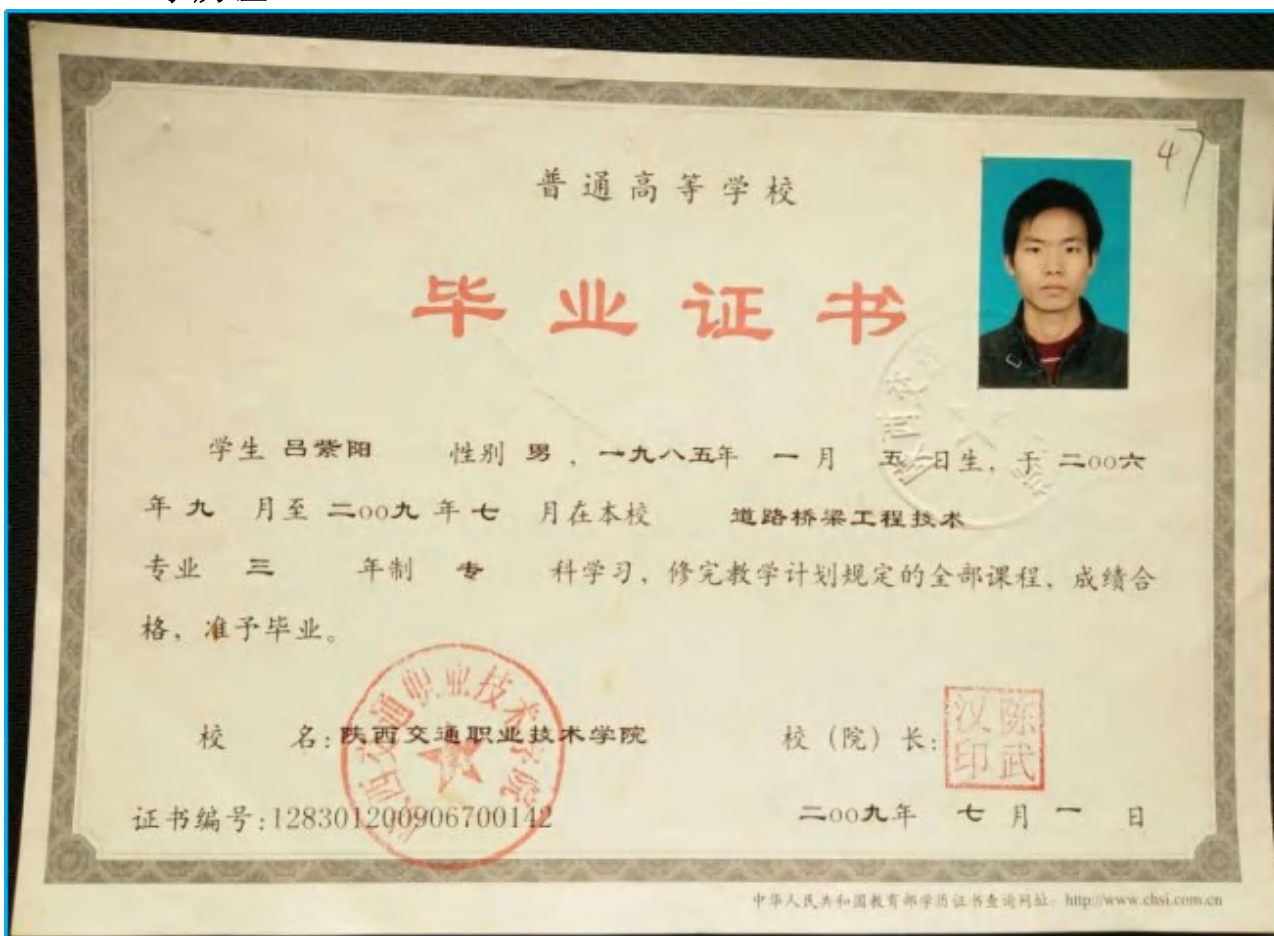 47
普通高等学校
毕业证书
学生 吕紫阳 性别 男 ，一九八五年 一 月 五 日生，于 二00六
年 九 月至 二00九 年 七 月在本校 道路桥梁工程技术
专业 三 年制 专 科学习，修完教学计划规定的全部课程，成绩合
格，准予毕业。
校 名：陕西交通职业技术学院 校（院）长：
陈武汉印
陕西交通职业技术学院
证书编号：128301200906700142 二00九年 七 月 一 日
中华人民共和国教育部学历证书查询网址：http://www.chsi.com.cn